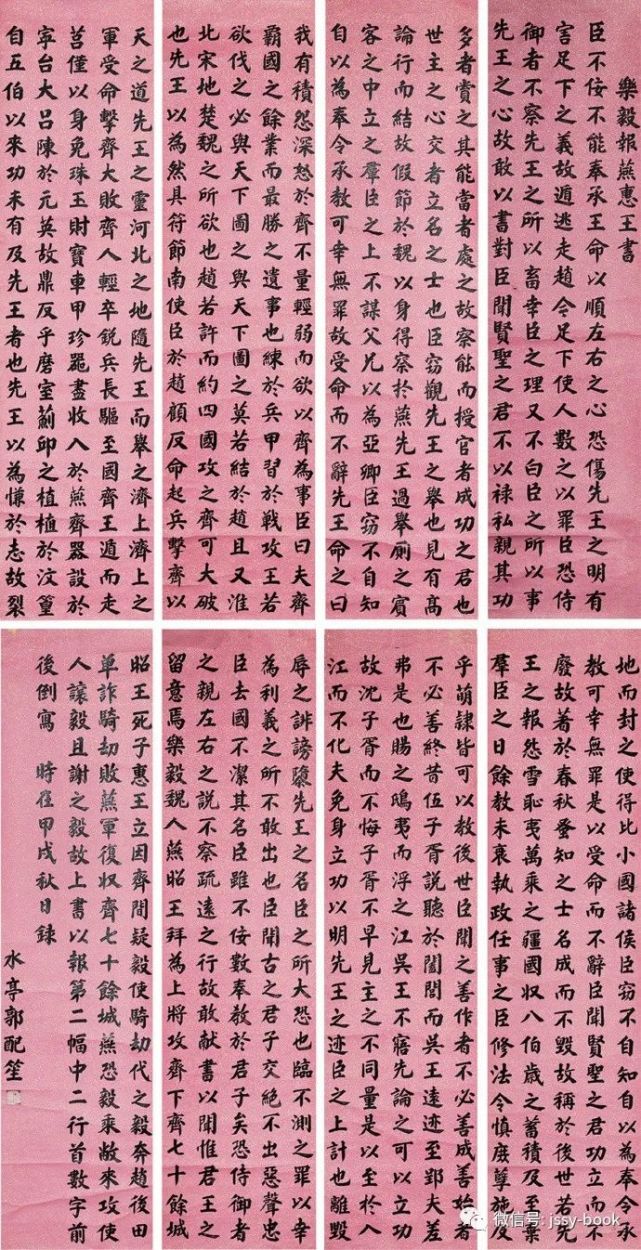 樂毅報燕惠王書
臣不佞不能奉承王命以順左右之心恐傷先王之明有
害足下之義故遁逃走趙今足下使人數之以罪臣恐侍
御者不察先王之所以畜幸臣之理又不白臣之所以事
先王之心故敢以書對臣聞賢聖之君不以祿私親其功
多者賞之其能當者處之故察能而授官者成功之君也
世主之心交者立名之士也臣竊觀先王之舉也見有高
論行而結故假節於魏以身得察於燕先王過舉廁之賓
客之中立之羣臣之上不謀父兄以為亞卿臣竊不自知
自以為奉令承教可幸無罪故受命而不辭先王命之曰
我有積怨深怒於齊不量輕弱而欲以齊為事臣曰夫齊
霸國之餘業而最勝之遺事也練於兵甲習於戰攻王若
欲伐之必與天下圖之與天下圖之莫若結於趙且又淮
北宋地楚魏之所欲也趙若許而約四國攻之齊可大破
也先王以為然具符節南使臣於趙顧反命起兵擊齊以
天之道先王之靈河北之地隨先王而舉之濟上濟上之
軍受命擊齊大敗齊人輕卒銳兵長驅至國齊王遁而走
莒僅以身免珠玉財寶車甲珍器盡收入於燕齊器設於
寧台大呂陳於元英故鼎反乎磨室薊邱之植植於汶篁
自五伯以來功未有及先王者也先王以為慊於志故裂
地而封之使得比小國諸侯臣竊不自知自以為奉令承
教可幸無罪是以受命而不辭臣聞賢聖之君功立而不
廢故著於春秋蚤知之士名成而不毀故稱於後世若先
王之報怨雪恥夷萬乘之彊國收八伯歲之蓄積及至棄
羣臣之日餘教未衰執政任事之臣修法令慎庶孽施及
乎萌隸皆可以教後世臣聞之善作者不必善成善始者
不必善終昔伍子胥說聽於闔閭而吳王遠迹至郢夫差
弗是也賜之鴟夷而浮之江吳王不寤先論之可以立功
故沈子胥而不悔子胥不早見主之不同量是以至於入
江而不化夫免身立功以明先王之迹臣之上計也離毀
辱之誹謗隳先王之名臣之所大恐也臨不測之罪以幸
為利義之所不敢出也臣聞古之君子交絕不出惡聲忠
臣去國不潔其名臣雖不佞數奉教於君子矣恐侍御者
之親左右之說不察疏遠之行故敢獻書以聞惟君王之
留意焉樂毅魏人燕昭王拜為上將攻齊下齊七十餘城
昭王死子惠王立因齊間疑毅使騎劫代之毅奔趙後田
單詐騎劫敗燕軍復收齊七十餘城燕恐毅乘敝來攻使
人讓毅且謝之毅故上書以報第二幅中二行首數字前
後倒寫 時在甲戌秋日錄
水亭郭配笙
微信号: jssy-book